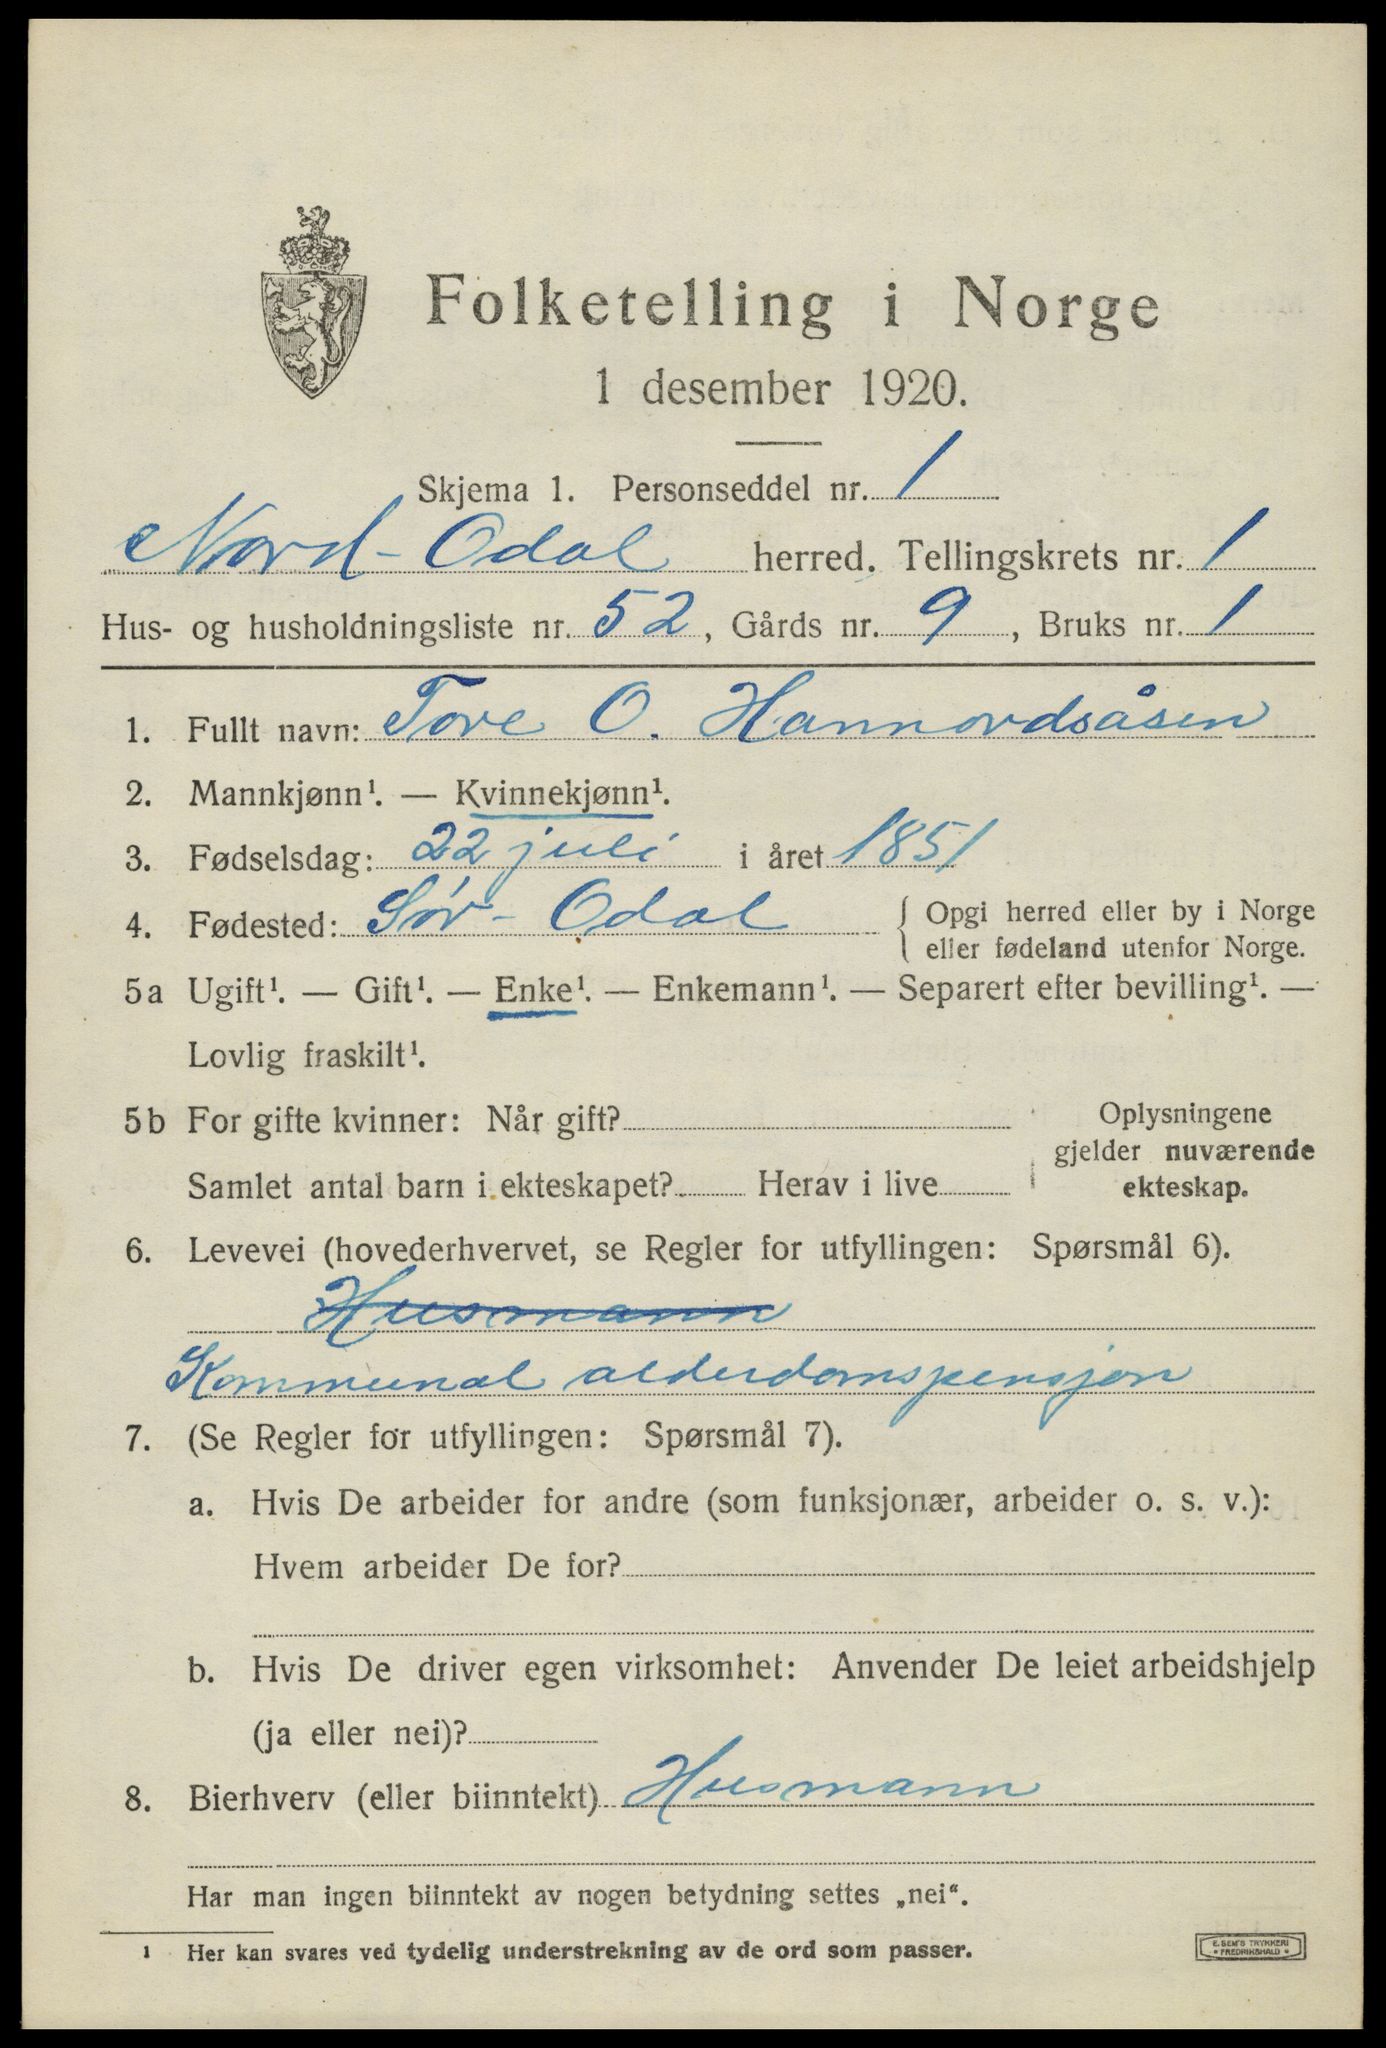 Folketelling i Norge
1 desember 1920.
Skjema 1. Personseddel nr. 1
Nord-Odal herred. Tellingskrets nr. 1
Hus- og husholdningsliste nr. 52, Gårds nr. 9, Bruks nr. 1
1. Fullt navn: Tore O. Hannordsåsen
2. Mannkjønn¹. — Kvinnekjønn¹.
3. Fødselsdag: 22 juli i året 1851
4. Fødested: Sør-Odal { Opgi herred eller by i Norge
eller fødeland utenfor Norge.
5a Ugift¹. — Gift¹. — Enke¹. — Enkemann¹. — Separert efter bevilling¹. —
Lovlig fraskilt¹.
5b For gifte kvinner: Når gift? Oplysningene
gjelder nuværende
Samlet antal barn i ekteskapet? Herav i live ekteskap.
6. Levevei (hovederhvervet, se Regler for utfyllingen: Spørsmål 6).
Husmann
Kommunal alderdomspensjon
7. (Se Regler for utfyllingen: Spørsmål 7).
a. Hvis De arbeider for andre (som funksjonær, arbeider o. s. v.):
Hvem arbeider De for?
b. Hvis De driver egen virksomhet: Anvender De leiet arbeidshjelp
(ja eller nei)?
8. Bierhverv (eller biinntekt) Husmann
Har man ingen biinntekt av nogen betydning settes „nei“.
¹ Her kan svares ved tydelig understrekning av de ord som passer.
E. SEM'S TRYKKERI
• FREDRIKSHALD •